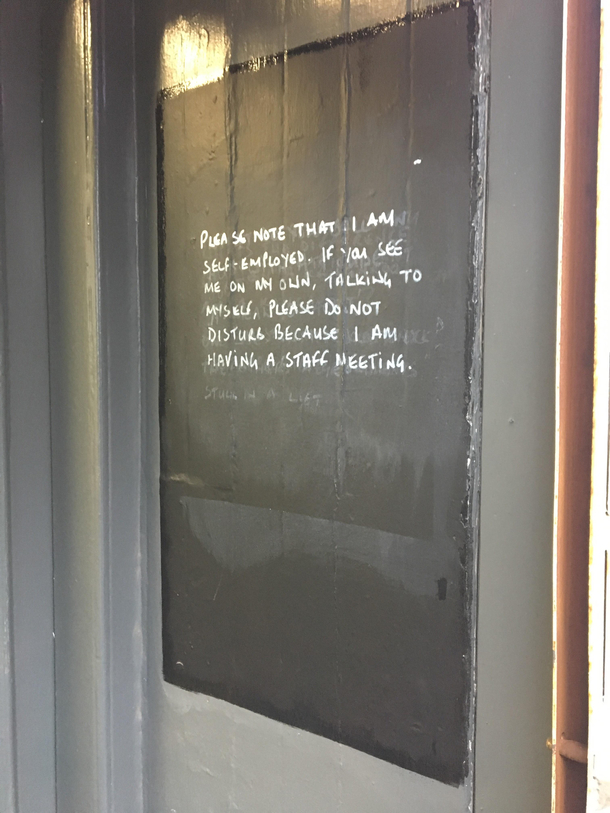 PLEASE NOTE THAT I AM
SELF-EMPLOYED. IF YOU SEE
ME ON MY OWN, TALKING TO
MYSELF, PLEASE DO NOT
DISTURB BECAUSE I AM
HAVING A STAFF MEETING.
A LIFT